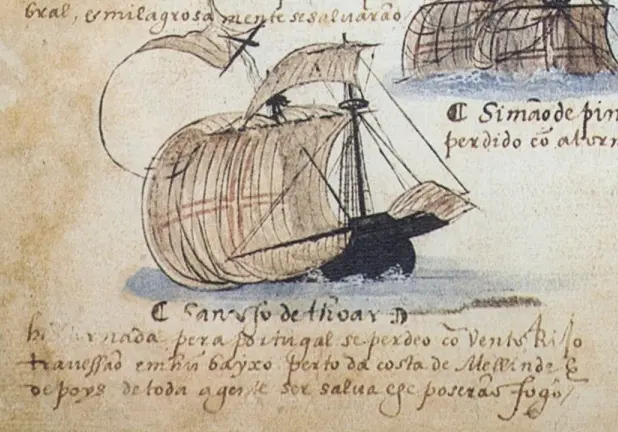 bral, e smilagrosa mente se saluarão
¶ Simão de pin
perdido cõ a torm
¶ Sancho de thoar
nada pera portugal se perdeo cõ vento Rijo
travessão em hũ bayxo perto da costa de Mellinde &
depoys de toda a gente ser salva lhe poserão fogo